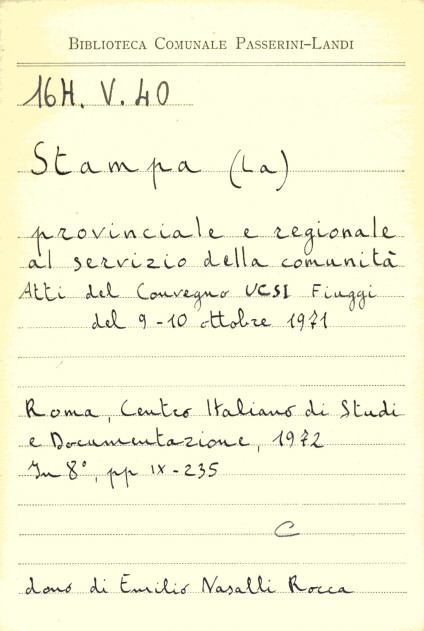 BIBLIOTECA COMUNALE PASSERINI-LANDI
16H. V. 40
Stampa (La)
provinciale e regionale
al servizio della comunità
Atti del Convegno UCSI Fiuggi
del 9-10 ottobre 1971
Roma, Centro Italiano di Studi
e Documentazione, 1972
In 8°, pp IX-235
C
dono di Emilio Nasalli Rocca